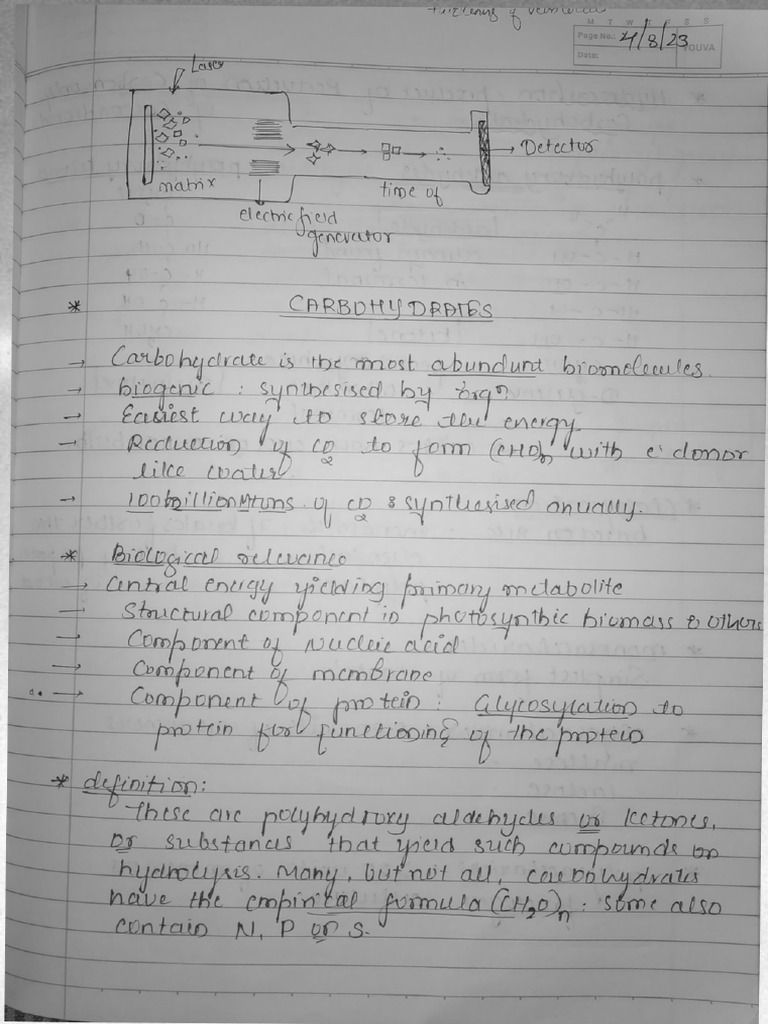 M T W T F S S
Page No.: 4/8/23
Date:
YOUVA
Laser
matrix
time of
→ Detector
electric field
generator
* CARBOHYDRATES
→ Carbohydrate is the most abundunt biomolecules.
→ biogenic : synthesised by orgn
→ Easiest way to store the energy.
→ Reduction of CO2 to form (CHO)n with e- donor
like water
→ 100 billion Mtons of CO2 synthesised anually.
* Biological relevance
→ Central energy yielding primary metabolite
→ Structural component in photosynthic biomass & others
→ Component of Nucleic acid
→ Component of membrane
→ Component of protein : Glycosylation to
protein for functioning of the protein
* definition:
These are polyhydroxy aldehydes or ketones,
or substances that yield such compounds on
hydrolysis. Many, but not all, carbohydrates
have the empirical formula (CH2O)n : some also
contain N, P or S.